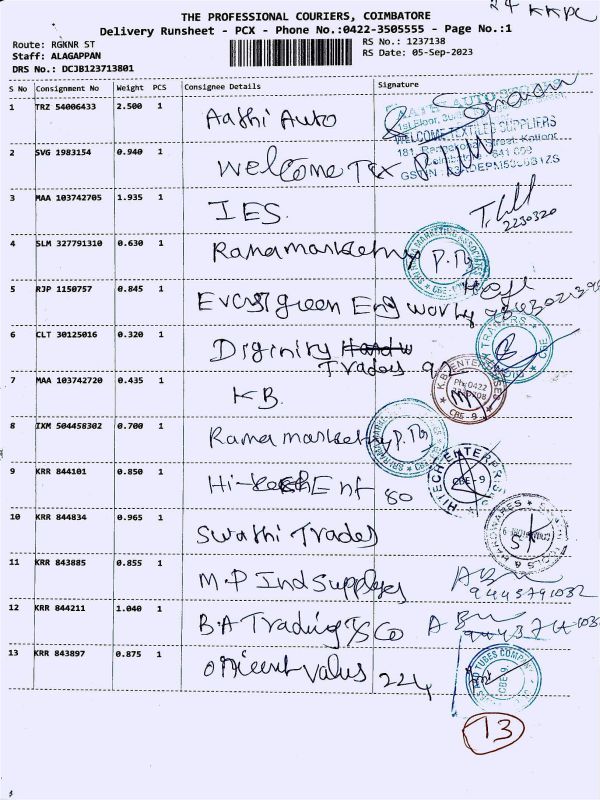 24 KKPC
THE PROFESSIONAL COURIERS, COIMBATORE
Delivery Runsheet - PCX - Phone No.:0422-3505555 - Page No.:1
Route: RGKNR ST
RS No.: 1237138
Staff: ALAGAPPAN
RS Date: 05-Sep-2023
DRS No.: DCJB123713801
S No Consignment No Weight PCS Consignee Details Signature
1 TRZ 54006433 2.500 1 Aathi Auto
WELCOME TEXTILED SUPPLIERS
2 SVG 1983154 0.940 1 Welcome Tex
3 MAA 103742705 1.935 1 IES. 2230320
4 SLM 327791310 0.630 1 Rama marketing P.
5 RJP 1150757 0.845 1 Evergreen Eng works
6 CLT 30125016 0.320 1 Diginity
Trades 92
7 MAA 103742720 0.435 1 KB. K.B. ENTERPRISES Ph:0422 CBE-9
8 IXM 504458302 0.700 1 Rama marketing P.
9 KRR 844101 0.850 1 Hi-tech Ent 80 HITECH ENTERPRISES CBE-9
10 KRR 844834 0.965 1 Swathi Trades
11 KRR 843885 0.855 1 M.P Ind Supplyes 9443791032
12 KRR 844211 1.040 1 B.A Trading & Co
13 KRR 843897 0.875 1 Oricent Values 224 TUBES COMPANY CBE-9.
13